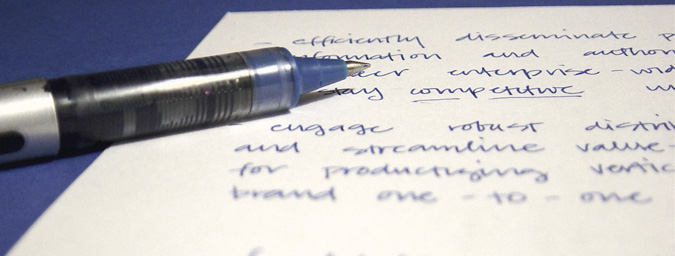 - efficiently disseminate
information and
enterprise-wid
stay competitive
- engage robust distri
and streamline value-
for productizing vertic
brand one-to-one